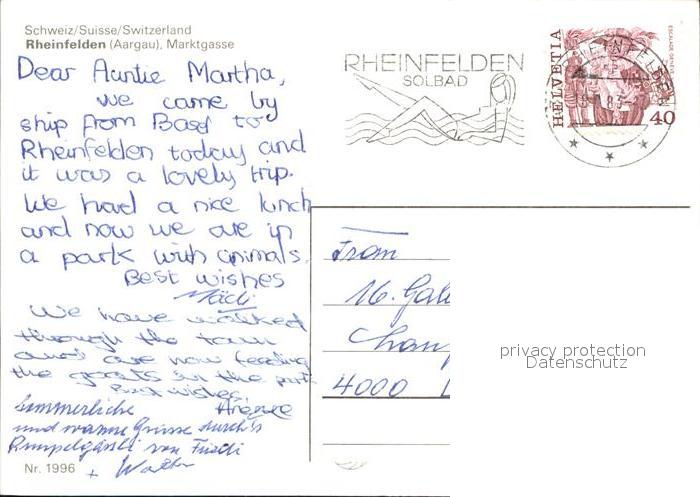 Schweiz/Suisse/Switzerland
Rheinfelden (Aargau), Marktgasse
Dear Auntie Martha,
we came by
ship from Basel to
Rheinfelden today and
it was a lovely trip.
We had a nice lunch
and now we are in
a park with animals.
Best wishes
Mädi
We have walked
through the town
and are now feeding
the goats in the park
Best wishes,
Sommerliche
und warme Grüsse durch's
Rumpelgässli von Friedi
+ Walter
Nr. 1996
RHEINFELDEN
SOLBAD
HELVETIA
40
RHEINFELDEN
Frau
16. Gall
Cham
4000
privacy protection
Datenschutz